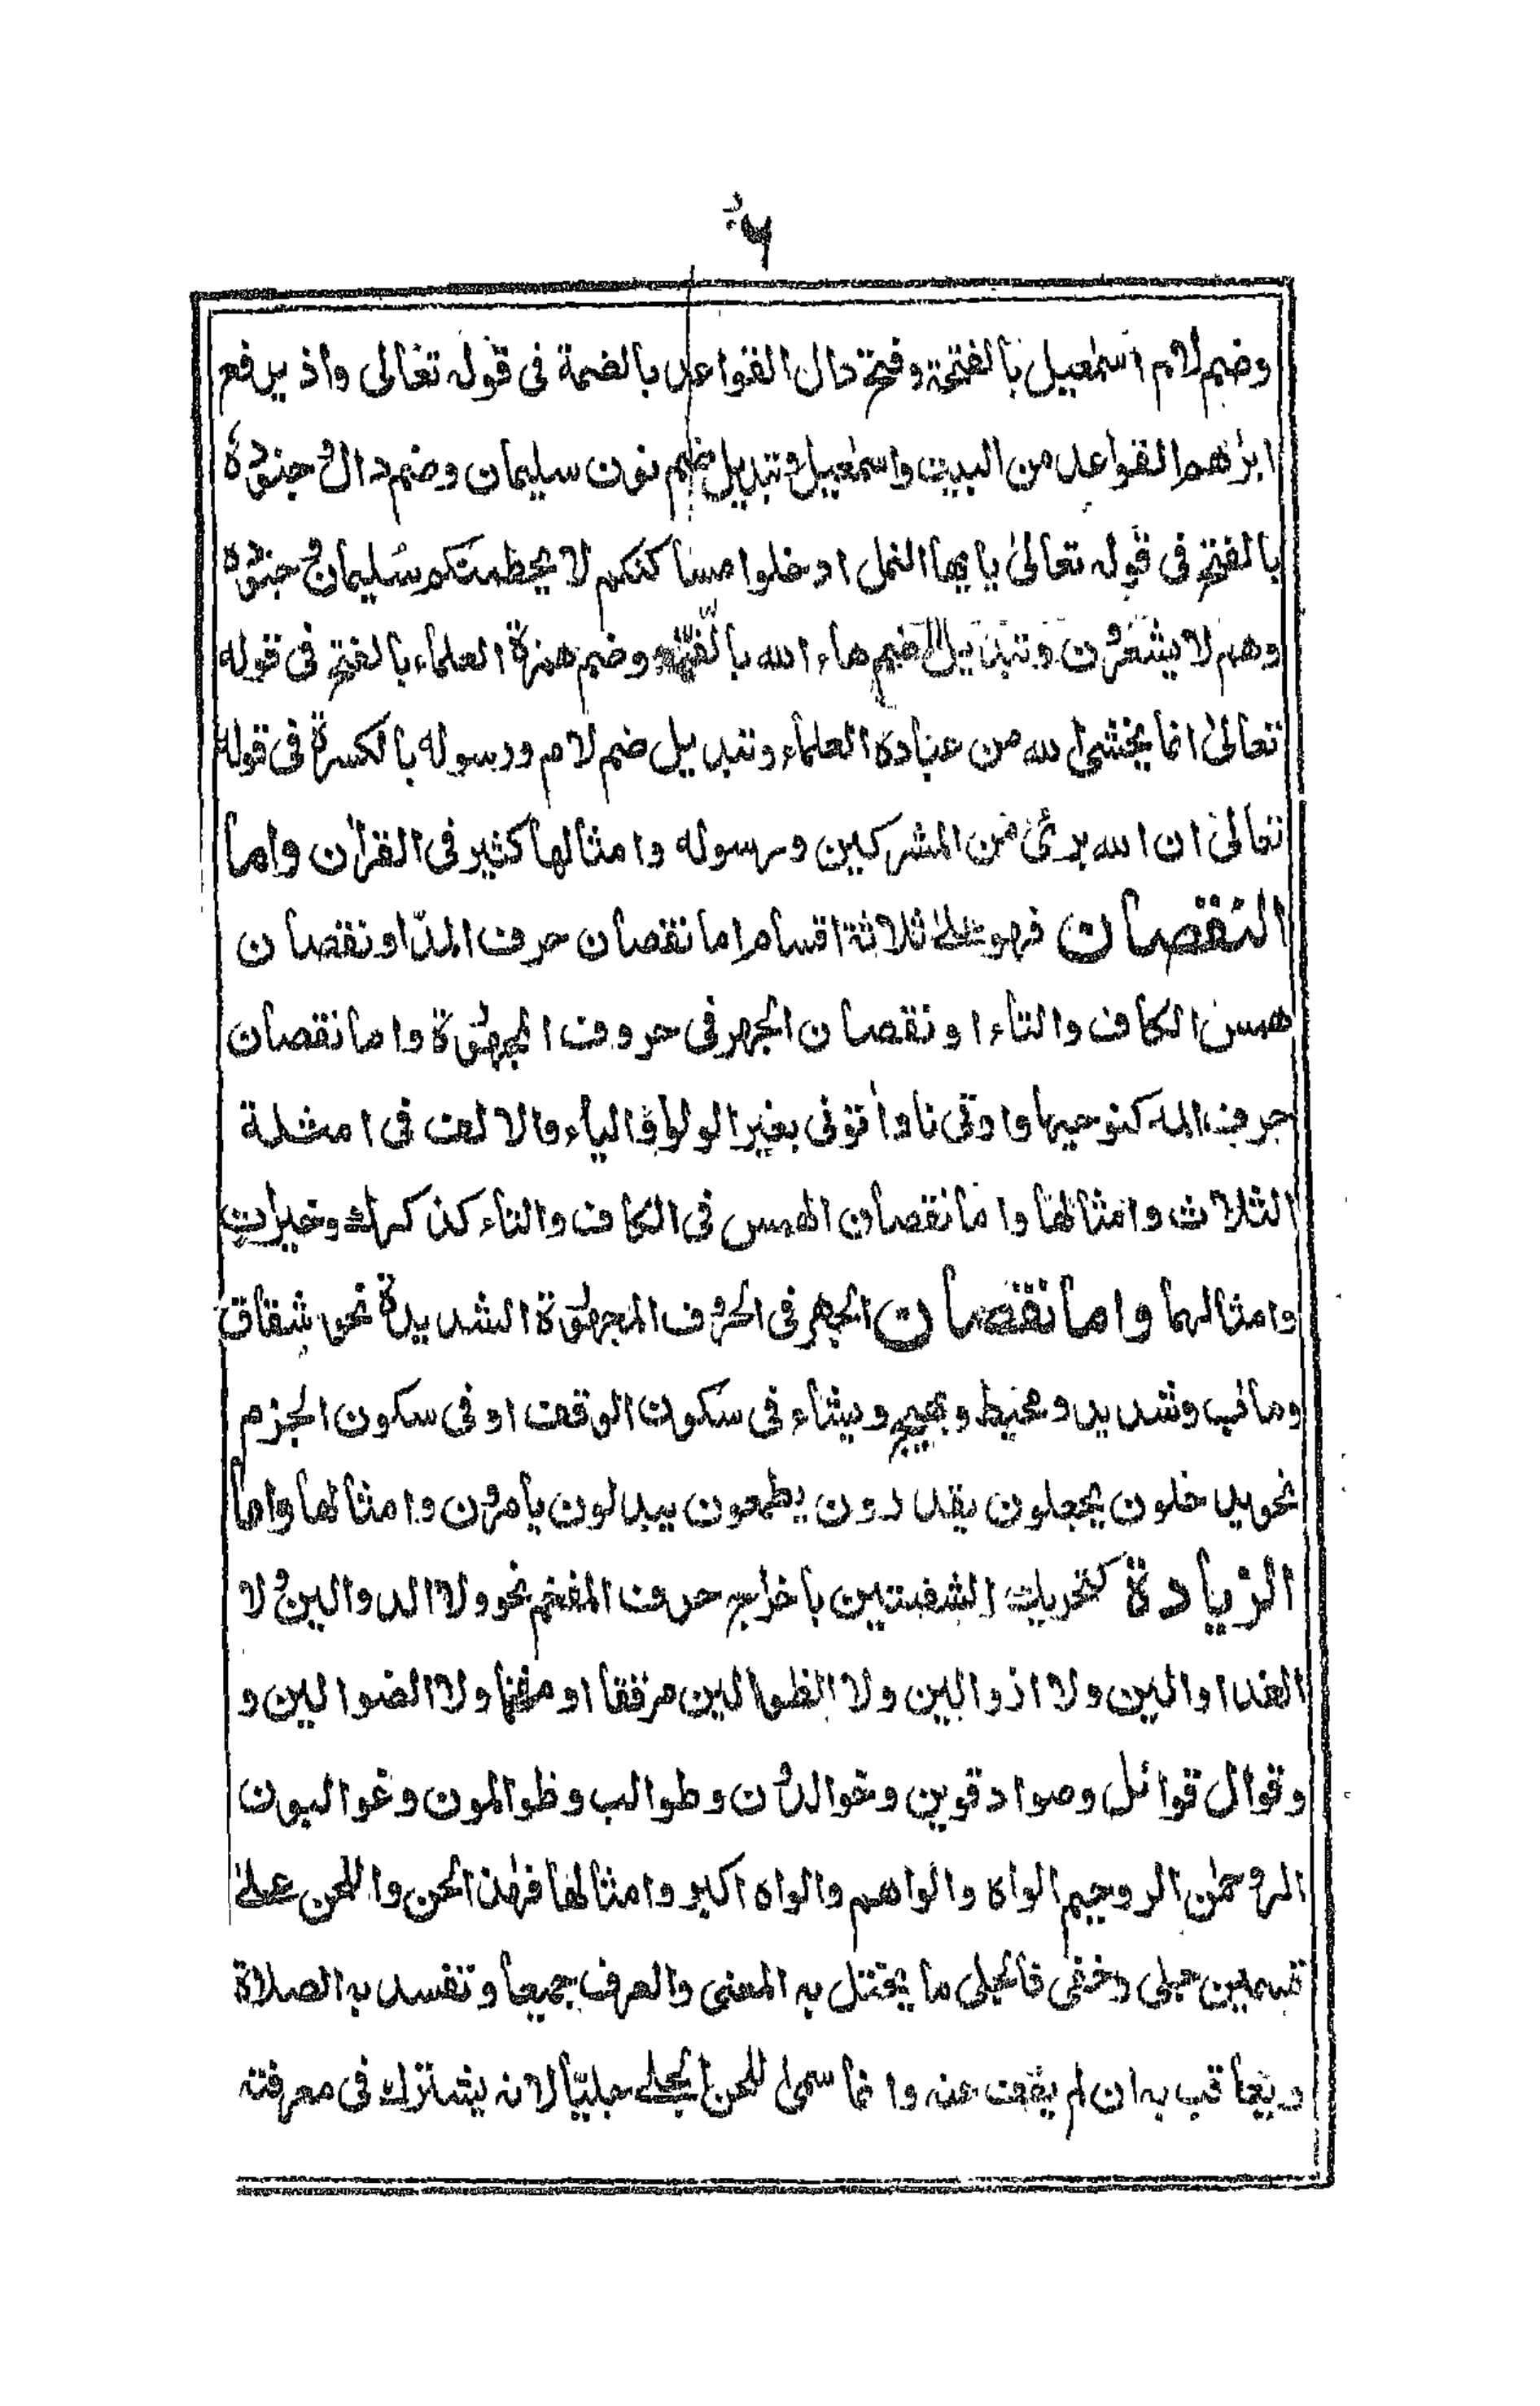 ٦
وضم لام اسمٰعيل بالفتحة وفتح دال القواعد بالضمة فى قوله تعالى واذ يرفع
ابرٰهم القواعد من البيت واسمٰعيل وتبديل ضم نون سليمان وضم دال جنوده
بالفتح فى قوله تعالىٰ يايها النمل ادخلوا مساكنكم لا يحطمنكم سُليمان وجنوده
وهم لا يشعرون وتبديل ضم هاء الله بالفتحة وضم همزة العلماء بالفتح فى قوله
تعالىٰ انما يخشى الله من عباده العلماء وتبديل ضم لام ورسوله بالكسرة فى قوله
تعالىٰ ان الله برئ من المشركين ورسوله وامثالها كثير فى القراٰن واما
النقصان فهو علىٰ ثلاثة اقسام اما نقصان حرف المدّ او نقصان
همس الكاف والتاء او نقصان الجهر فى حروف المجهورة واما نقصان
حرف المد كنوحيها واوتى نا واٰتونى بغير الواو والياء والالف فى امثلة
الثلاث وامثالها واما نقصان الهمس فى الكاف والتاء كذكرك وخيرات
وامثالهما واما نقصان الجهر فى الحروف المجهورة الشديدة نحو شقاق
وماٰب وشديد ومحيط وبهيج ويشاء فى سكون الوقف او فى سكون الجزم
نحو يدخلون يجعلون يقدرون يطمعون يبدلون يأمرون وامثالها واما
الزيادة كتحريك الشفتين باخراج حرف المفخم نحو ولا الدوالين ولا
الغداوالين ولا اذوالين ولا الظوالين مرققا او مفخما ولا الضوالين و
وقوال قوائل وصوادقوين وخوالدون وطوالب وظوالمون وغواليون
الروحمٰن الروحيم الواه والواهم والواه اكبر وامثالها فهٰذا لحن واللحن علىٰ
قسمين جلى وخفى فالجلى ما يختل به المعنى والعرف جميعا وتفسد به الصلاة
ويعاقب به ان لم يقف عنه وانما سمى اللحن الجلى جليّا لانه يشترك فى معرفته